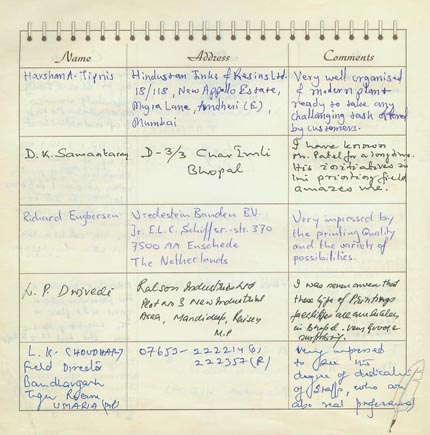 Name Address Comments
Harshan A. Tipnis
Hindustan Inks & Resins Ltd.
18/118, New Apollo Estate,
Mogra Lane, Andheri (E),
Mumbai
Very well organised
& modern plant
ready to take any
challanging task offered
by customers.
D. K. Samantaray
D-3/3 Char Imli
Bhopal
I have known
Mr. Patel for a long time.
His initiatives in
printing field
amazes me.
Richard Engbersen
Vredestein Banden B.V.
Ir. E.L.C. Schiff sr.-str. 370
7500 AA Enschede
The Netherlands
Very impressed by
the printing Quality
and the variety of
possibilities.
P. Dwivedi
Ralson Industries Ltd
Plot no 3 New Industrial
Area, Mandideep, Raisen
M.P
I was never aware that
these type of Printings
facilities are available
in Bhopal. Very good &
L. K. CHOUDHARY
Field Director
Bandhavgarh
Tiger Reserve,
UMARIA (MP)
07653-222214 (O)
222357 (R)
Very impressed
to see the
degree of dedication
of staffs, who are
also real professional